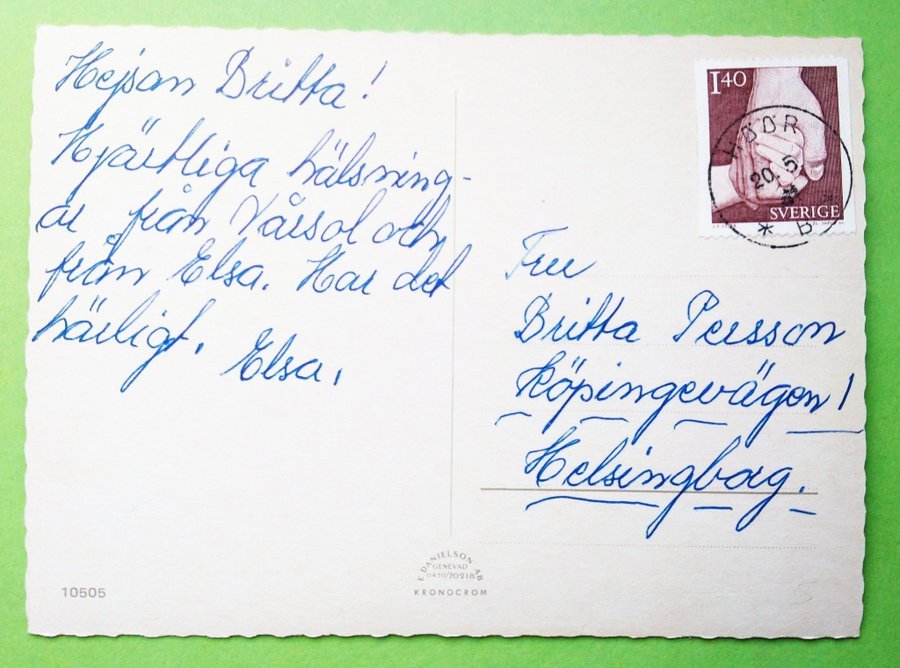 Hejsan Britta!
Hjärtliga hälsning-
ar från Vårsol och
från Elsa. Har det
härligt.
Elsa.
1 40
SVERIGE
HÖÖR
20. 5.
* B
Fru
Britta Persson
Köpingevägen 1
Helsingborg.
E. DANIELSON AB
GENEVAD
0430/70218
KRONOCROM
10505